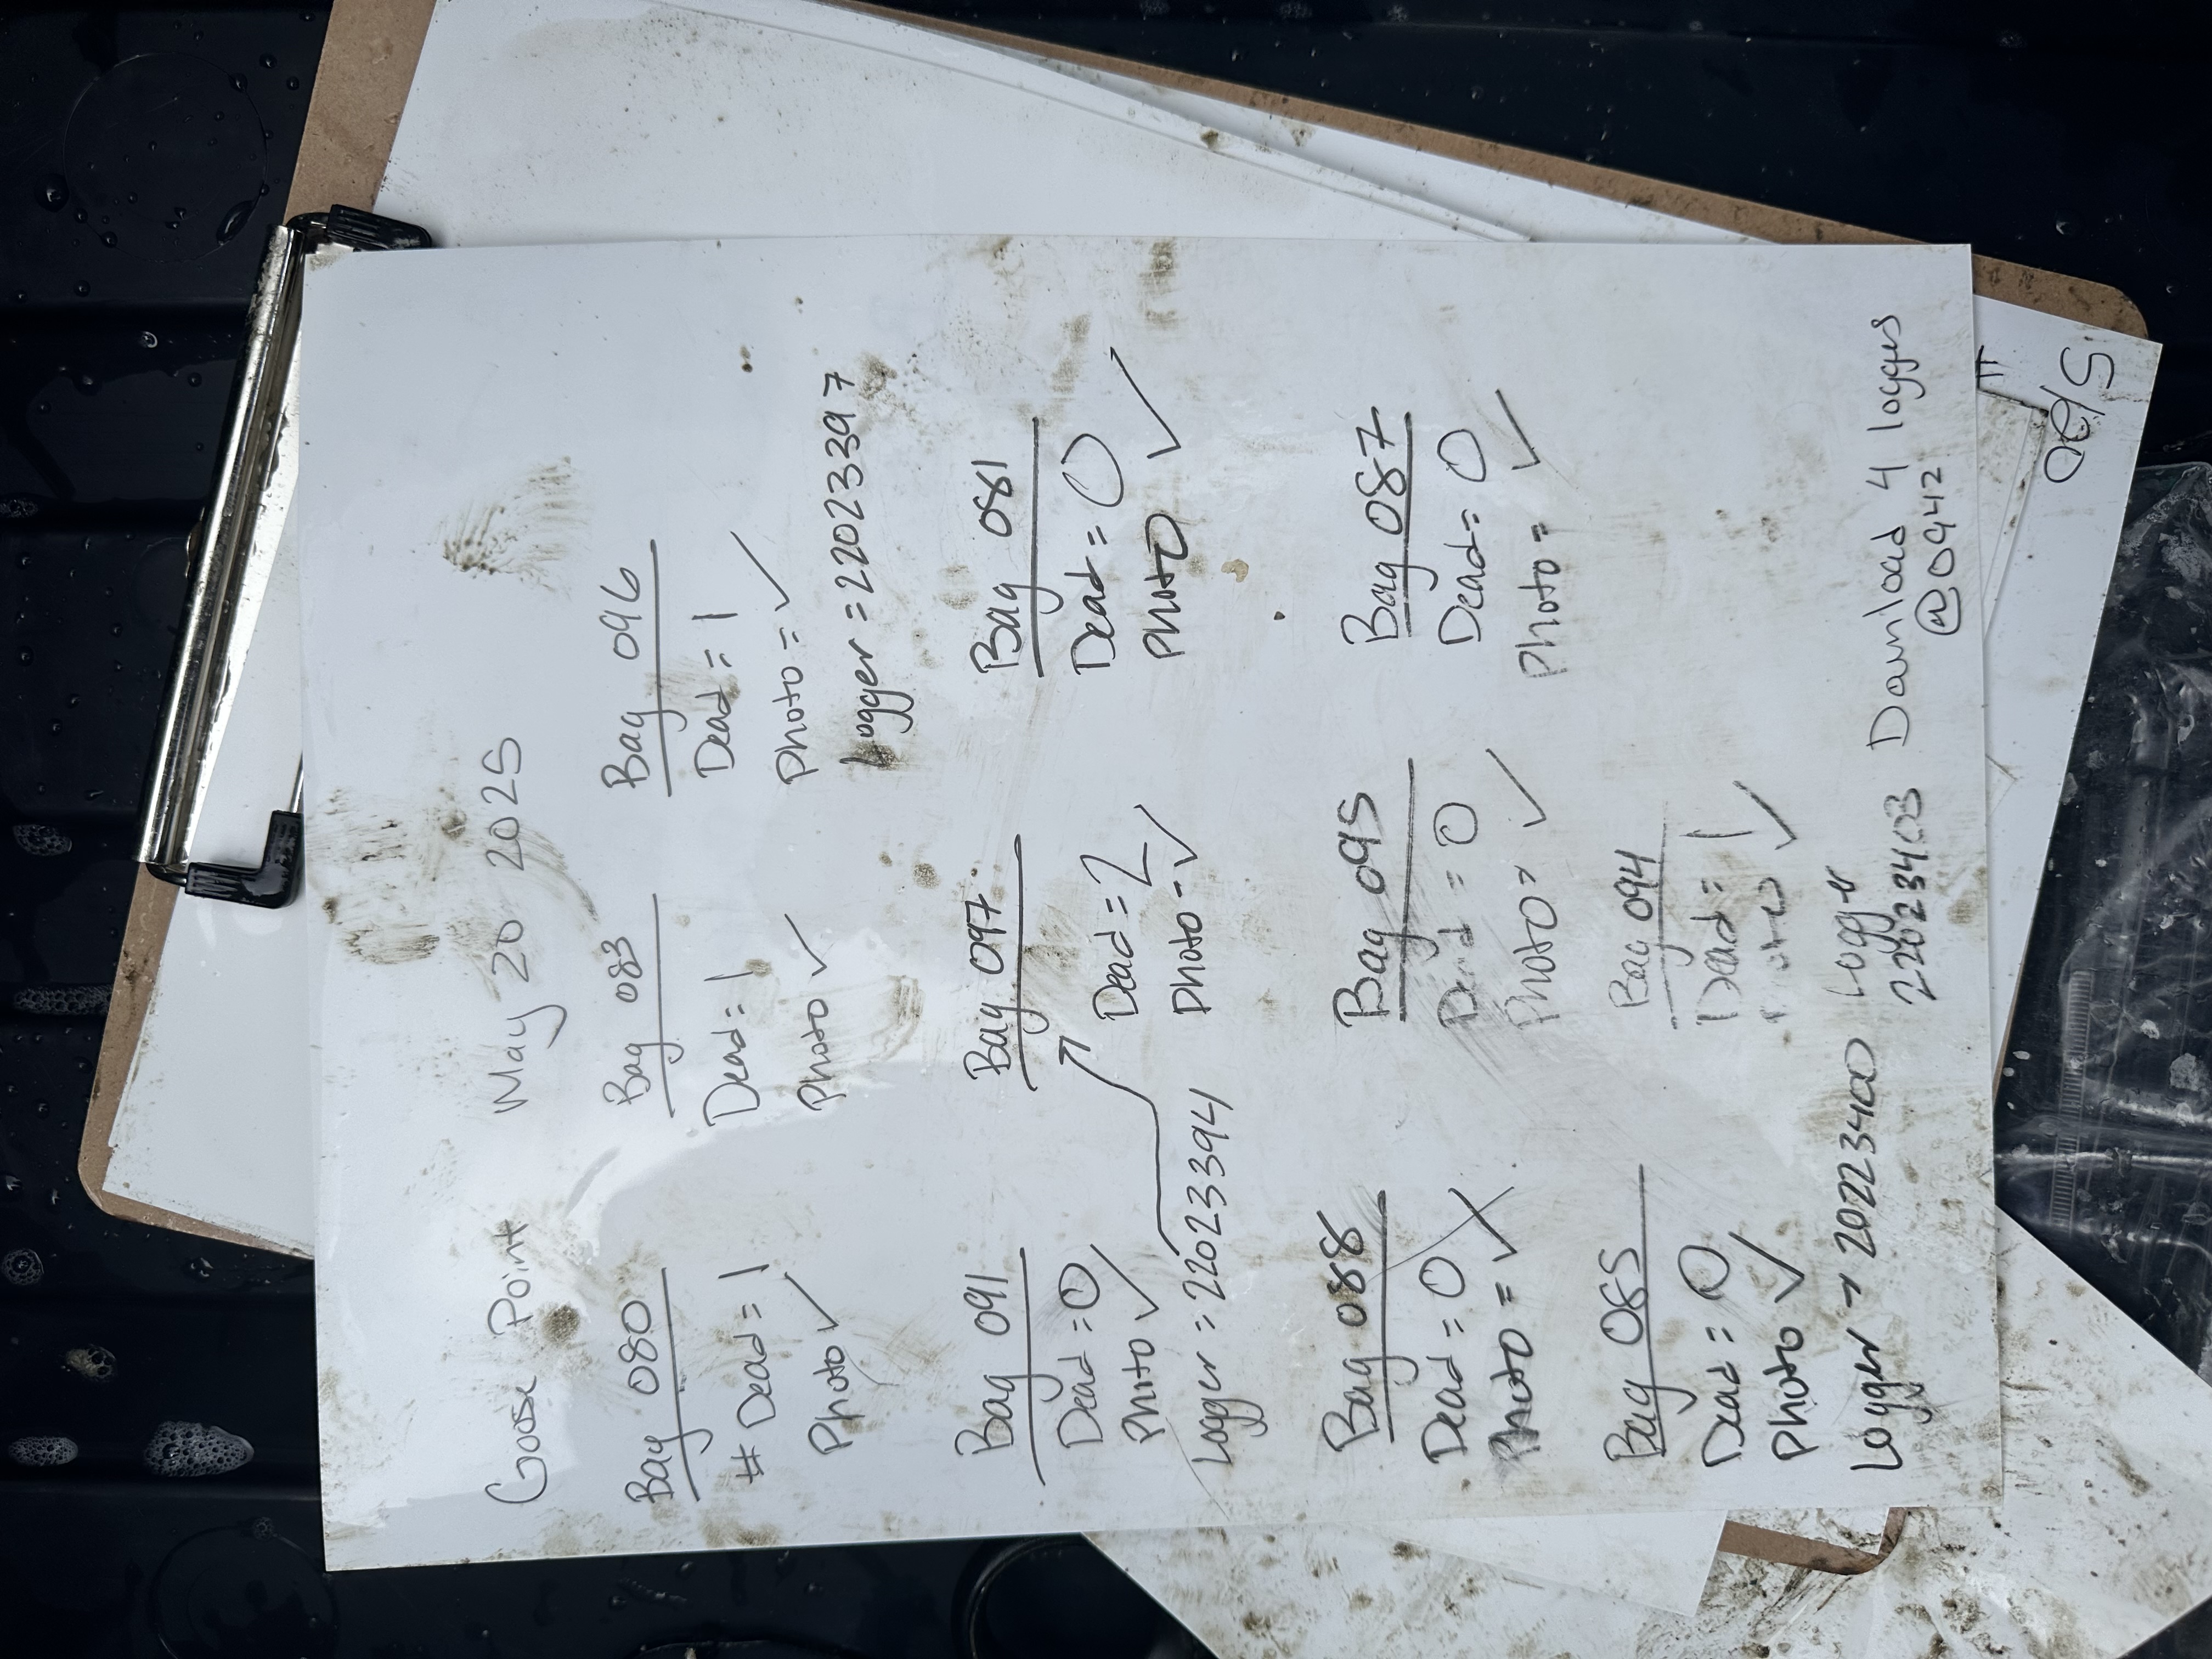 Goose Point May 20 2025
Bag 080
# Dead = 1
Photo ✓
Bag 083
Dead = 1
Photo ✓
Bag 096
Dead = 1
Photo = ✓
Logger = 22023397
Bag 091
Dead = 0
Photo ✓
Logger = 22023394
Bag 097
Dead = 2
Photo - ✓
Bag 081
Dead = 0
Photo ✓
Bag 088
Dead = 0
Photo = ✓
Bag 095
Dead = 0
Photo = ✓
Bag 087
Dead = 0
Photo = ✓
Bag 085
Dead = 0
Photo ✓
Logger → 20223400
Bag 094
Dead = 1
Photo ✓
Logger
22023403
Download 4 loggers
@0942